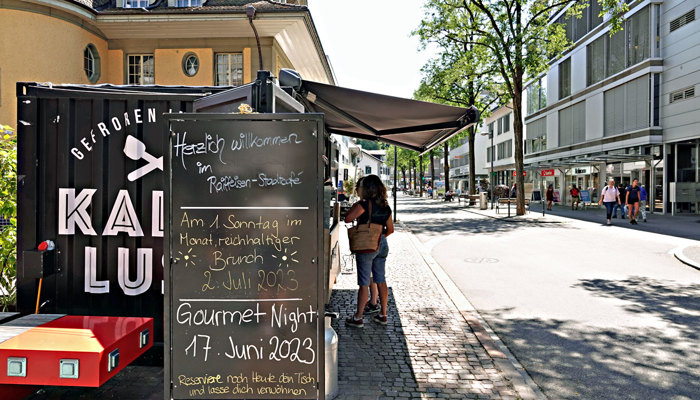 GEFROREN
KAL
LUS
Herzlich willkommen
im
Raiffeisen-Stadtcafé
Am 1 Sonntag im
Monat, reichhaltiger
Brunch
2. Juli 2023
Gourmet Night
17. Juni 2023
Reserviere noch Heute dein Tisch
und lasse dich verwöhnen